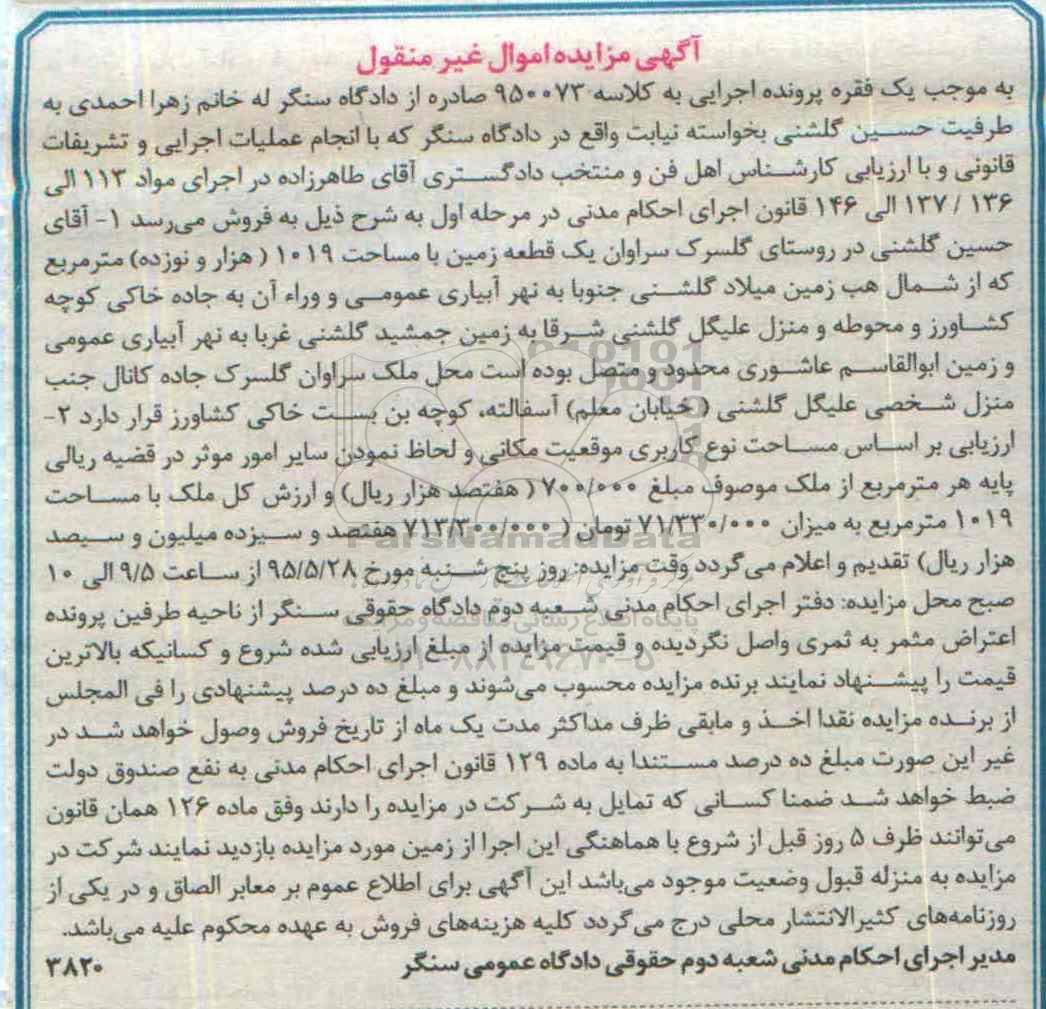 آگهی مزایده اموال غیر منقول
به موجب یک فقره پرونده اجرایی به کلاسه ۹۵۰۰۷۳ صادره از دادگاه سنگر له خانم زهرا احمدی به
طرفیت حسین گلشنی بخواسته نیابت واقع در دادگاه سنگر که با انجام عملیات اجرایی و تشریفات
قانونی و با ارزیابی کارشناس اهل فن و منتخب دادگستری آقای طاهرزاده در اجرای مواد ۱۱۳ الی
۱۳۶ / ۱۳۷ الی ۱۴۶ قانون اجرای احکام مدنی در مرحله اول به شرح ذیل به فروش می‌رسد ۱- آقای
حسین گلشنی در روستای گلسرک سراوان یک قطعه زمین با مساحت ۱۰۱۹ ( هزار و نوزده) مترمربع
که از شمال هب زمین میلاد گلشنی جنوبا به نهر آبیاری عمومی و وراء آن به جاده خاکی کوچه
کشاورز و محوطه و منزل علیگل گلشنی شرقا به زمین جمشید گلشنی غربا به نهر آبیاری عمومی
و زمین ابوالقاسم عاشوری محدود و متصل بوده است محل ملک سراوان گلسرک جاده کانال جنب
منزل شخصی علیگل گلشنی ( خیابان معلم) آسفالته، کوچه بن بست خاکی کشاورز قرار دارد ۲-
ارزیابی بر اساس مساحت نوع کاربری موقعیت مکانی و لحاظ نمودن سایر امور موثر در قضیه ریالی
پایه هر مترمربع از ملک موصوف مبلغ ۷۰۰/۰۰۰ ( هفتصد هزار ریال) و ارزش کل ملک با مساحت
۱۰۱۹ مترمربع به میزان ۷۱/۳۳۰/۰۰۰ تومان ( ۷۱۳/۳۰۰/۰۰۰ هفتصد و سیزده میلیون و سیصد
هزار ریال) تقدیم و اعلام می‌گردد وقت مزایده: روز پنج شنبه مورخ ۹۵/۵/۲۸ از ساعت ۹/۵ الی ۱۰
صبح محل مزایده: دفتر اجرای احکام مدنی شعبه دوم دادگاه حقوقی سنگر از ناحیه طرفین پرونده
اعتراض مثمر به ثمری واصل نگردیده و قیمت مزایده از مبلغ ارزیابی شده شروع و کسانیکه بالاترین
قیمت را پیشنهاد نمایند برنده مزایده محسوب می‌شوند و مبلغ ده درصد پیشنهادی را فی المجلس
از برنده مزایده نقدا اخذ و مابقی ظرف مداکثر مدت یک ماه از تاریخ فروش وصول خواهد شد در
غیر این صورت مبلغ ده درصد مستندا به ماده ۱۲۹ قانون اجرای احکام مدنی به نفع صندوق دولت
ضبط خواهد شد ضمنا کسانی که تمایل به شرکت در مزایده را دارند وفق ماده ۱۲۶ همان قانون
می‌توانند ظرف ۵ روز قبل از شروع با هماهنگی این اجرا از زمین مورد مزایده بازدید نمایند شرکت در
مزایده به منزله قبول وضعیت موجود می‌باشد این آگهی برای اطلاع عموم بر معابر الصاق و در یکی از
روزنامه‌های کثیرالانتشار محلی درج می‌گردد کلیه هزینه‌های فروش به عهده محکوم علیه می‌باشد.
مدیر اجرای احکام مدنی شعبه دوم حقوقی دادگاه عمومی سنگر ۳۸۲۰
ParsNamadData
پایگاه اطلاع رسانی مناقصه و مزایده